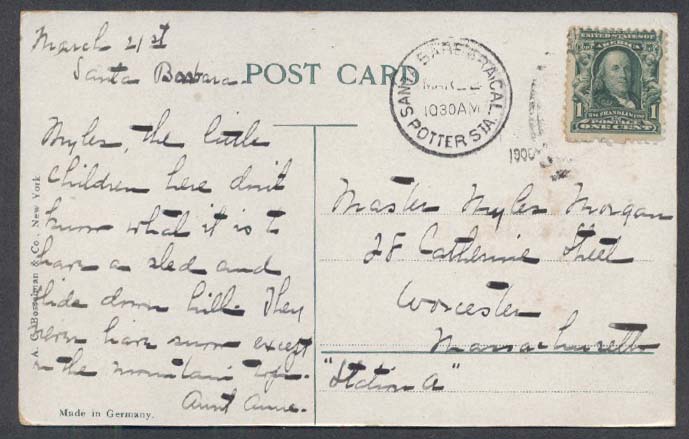 March 21st
Santa Barbara
POST CARD
SANTA BARBARA, CAL.
MAR
1030AM
POTTER STA.
190
UNITED STATES OF
AMERICA
1 1
FRANKLIN
POSTAGE
ONE CENT
Myles, the little
children here don't
know what it is to
have a sled and
slide down hill. They
never have snow except
on the mountain tops.
Aunt Anne.
Master Myles Morgan
28 Catherine Street
Worcester
Massachusetts
"Station A"
A. C. Bosselman & Co., New York
Made in Germany.